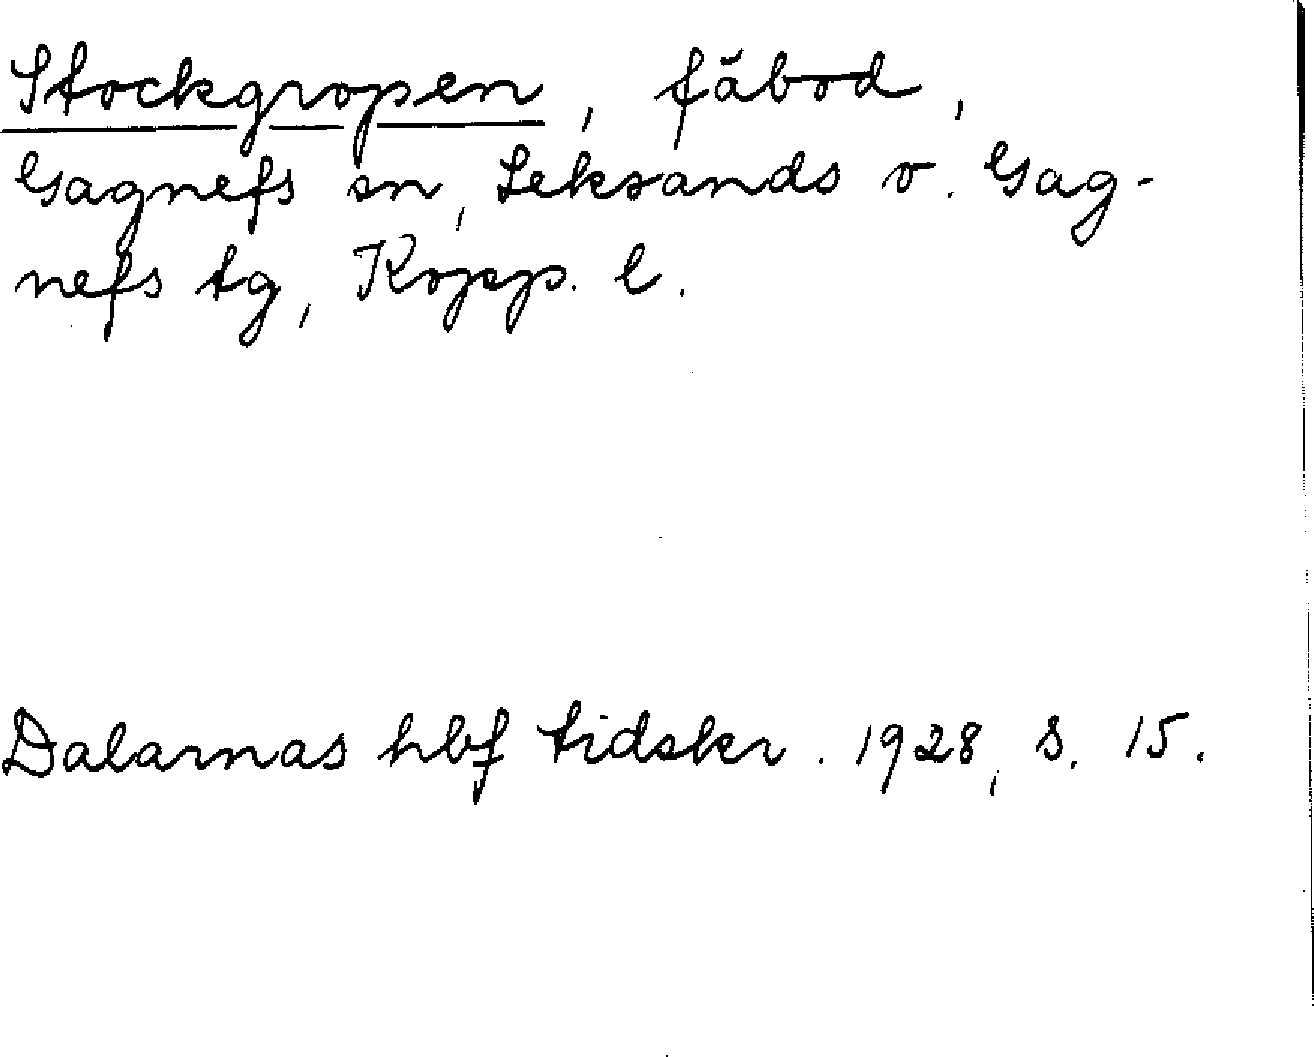 Stockgropen, fäbod,
Gagnefs sn, Leksands o. Gag-
nefs tg, Kopp. l.
Dalarnas hbf tidskr. 1928, s. 15.